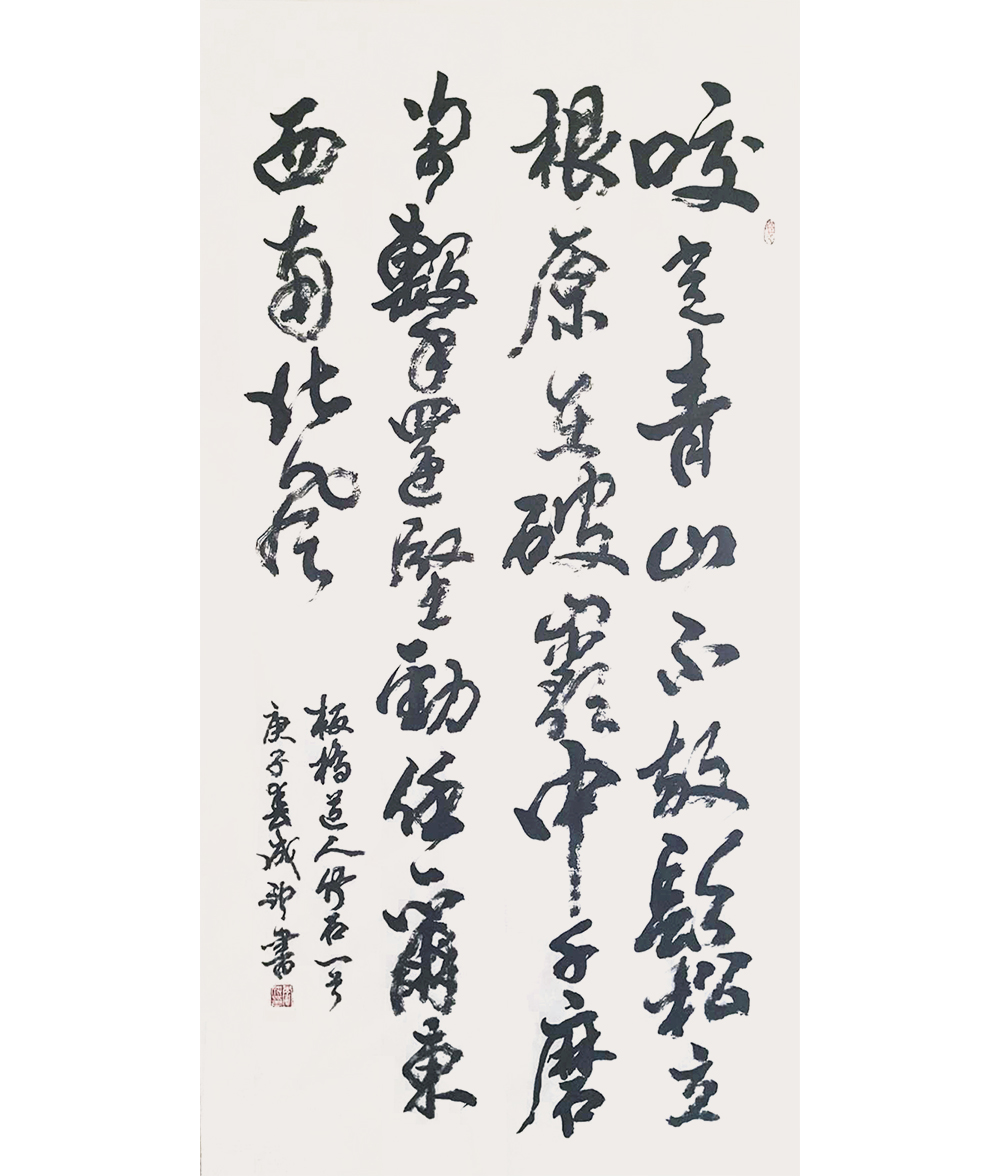 咬定青山不放鬆立
根原在破巖中千磨
萬擊還堅勁任爾東
西南北風
板橋道人竹石一首
庚子春成書